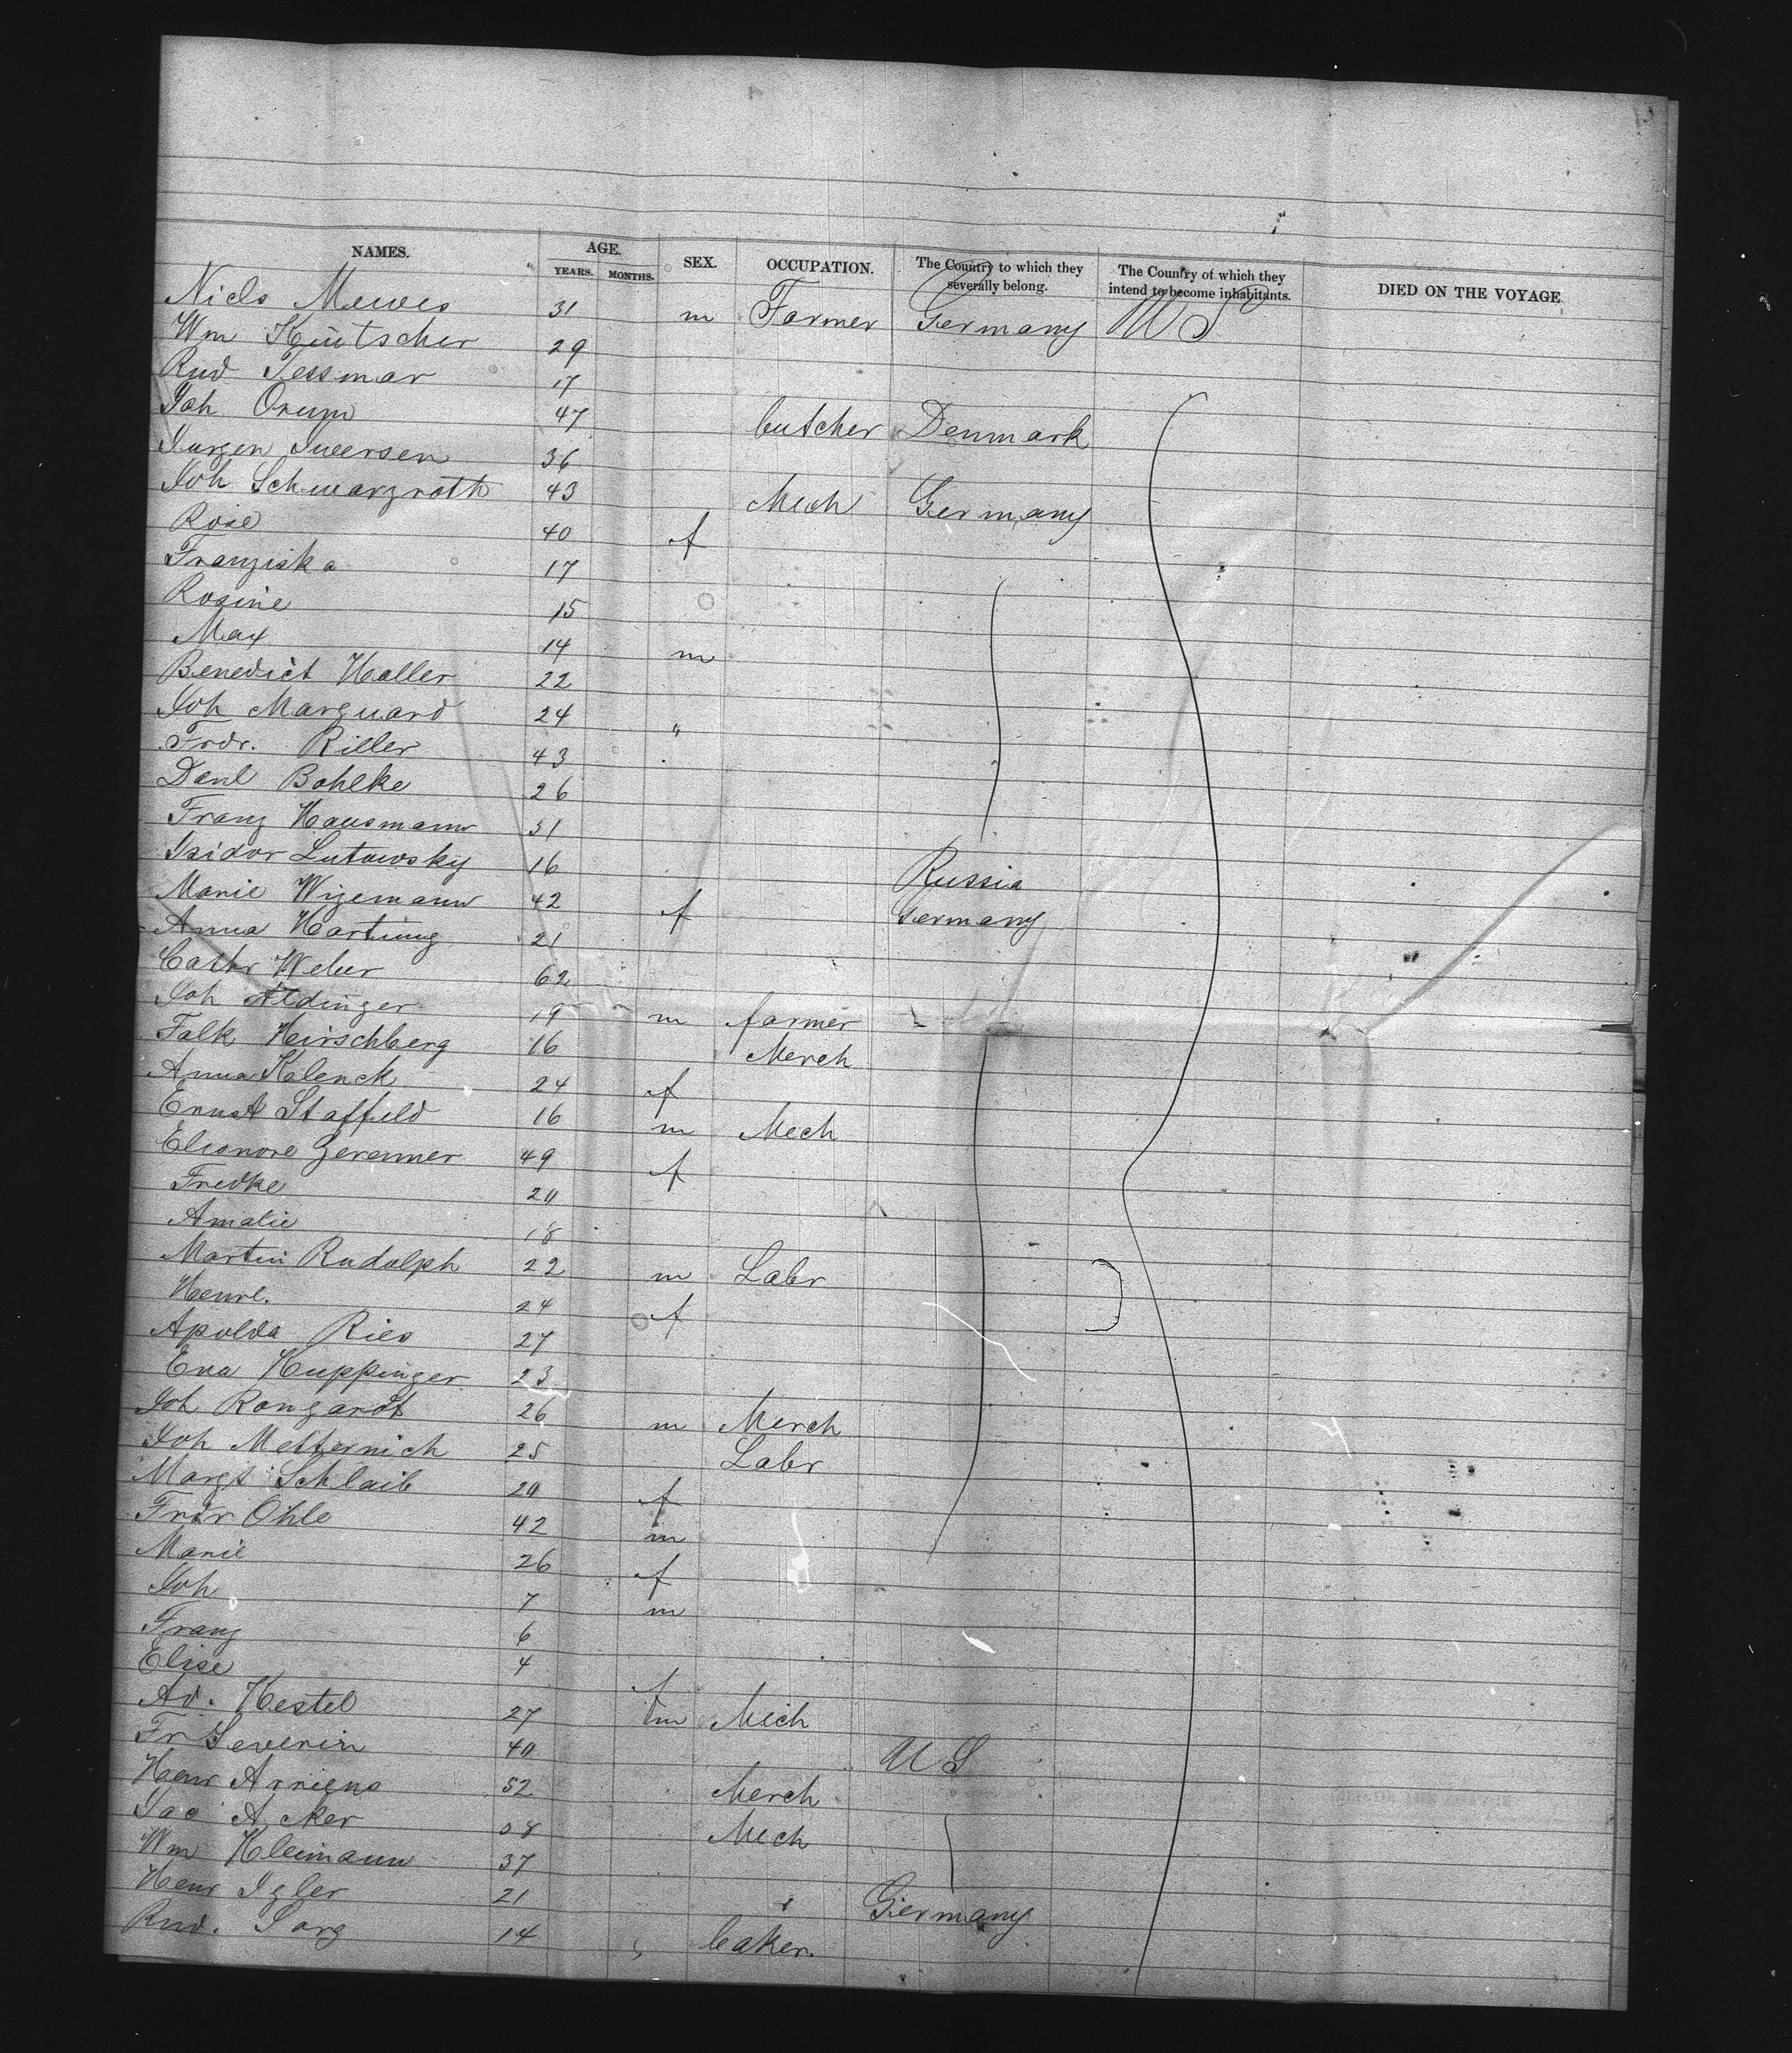 NAMES. AGE. YEARS. MONTHS. SEX. OCCUPATION. The Country to which they severally belong. The Country of which they intend to become inhabitants. DIED ON THE VOYAGE.
Niels Mewes 31 m Farmer Germany US
Wm Küütscher 29
Rud Tessmar 17
Joh Orum 47 butcher Denmark
Jurgen Iwersen 36
Joh Schwarzroth 43 Mech Germany
Rose 40 f
Franziska 17
Rosine 15
Max 14 m
Benedict Haller 22
Joh Marquard 24 "
Frdr. Riller 43
Danl Bohlke 26
Franz Hausmann 31
Isidor Lutowsky 16 Russia
Marie Wizemann 42 f Germany
Anna Hartung 21
Cathr Weber 62
Joh Aldinger 19 m farmer
Falk Hirschberg 16 Merch
Anna Kalenck 24 f
Ernst Staffeld 16 m Mech
Eleonore 49 f
Fredke 20
Amalie 18
Martin Rudolph 22 m Labr
Henrl. 24 f
Apolda Ries 27
Eva Huppinger 23
Joh Rongardt 26 m Merch
Joh Metternich 25 Labr
Margt Schlaib 20 f
Frdr Ohle 42 m
Marie 26 f
Joh 7 m
Franz 6
Elise 4 f
Ad. Hestel 27 m Mech
Fr Severin 40 US
Henr Arriens 52 Merch
Jac Acker 38 Mech
Wm Kleimann 37
Henr Igler 21 Germany
Rud. Sorg 14 baker.